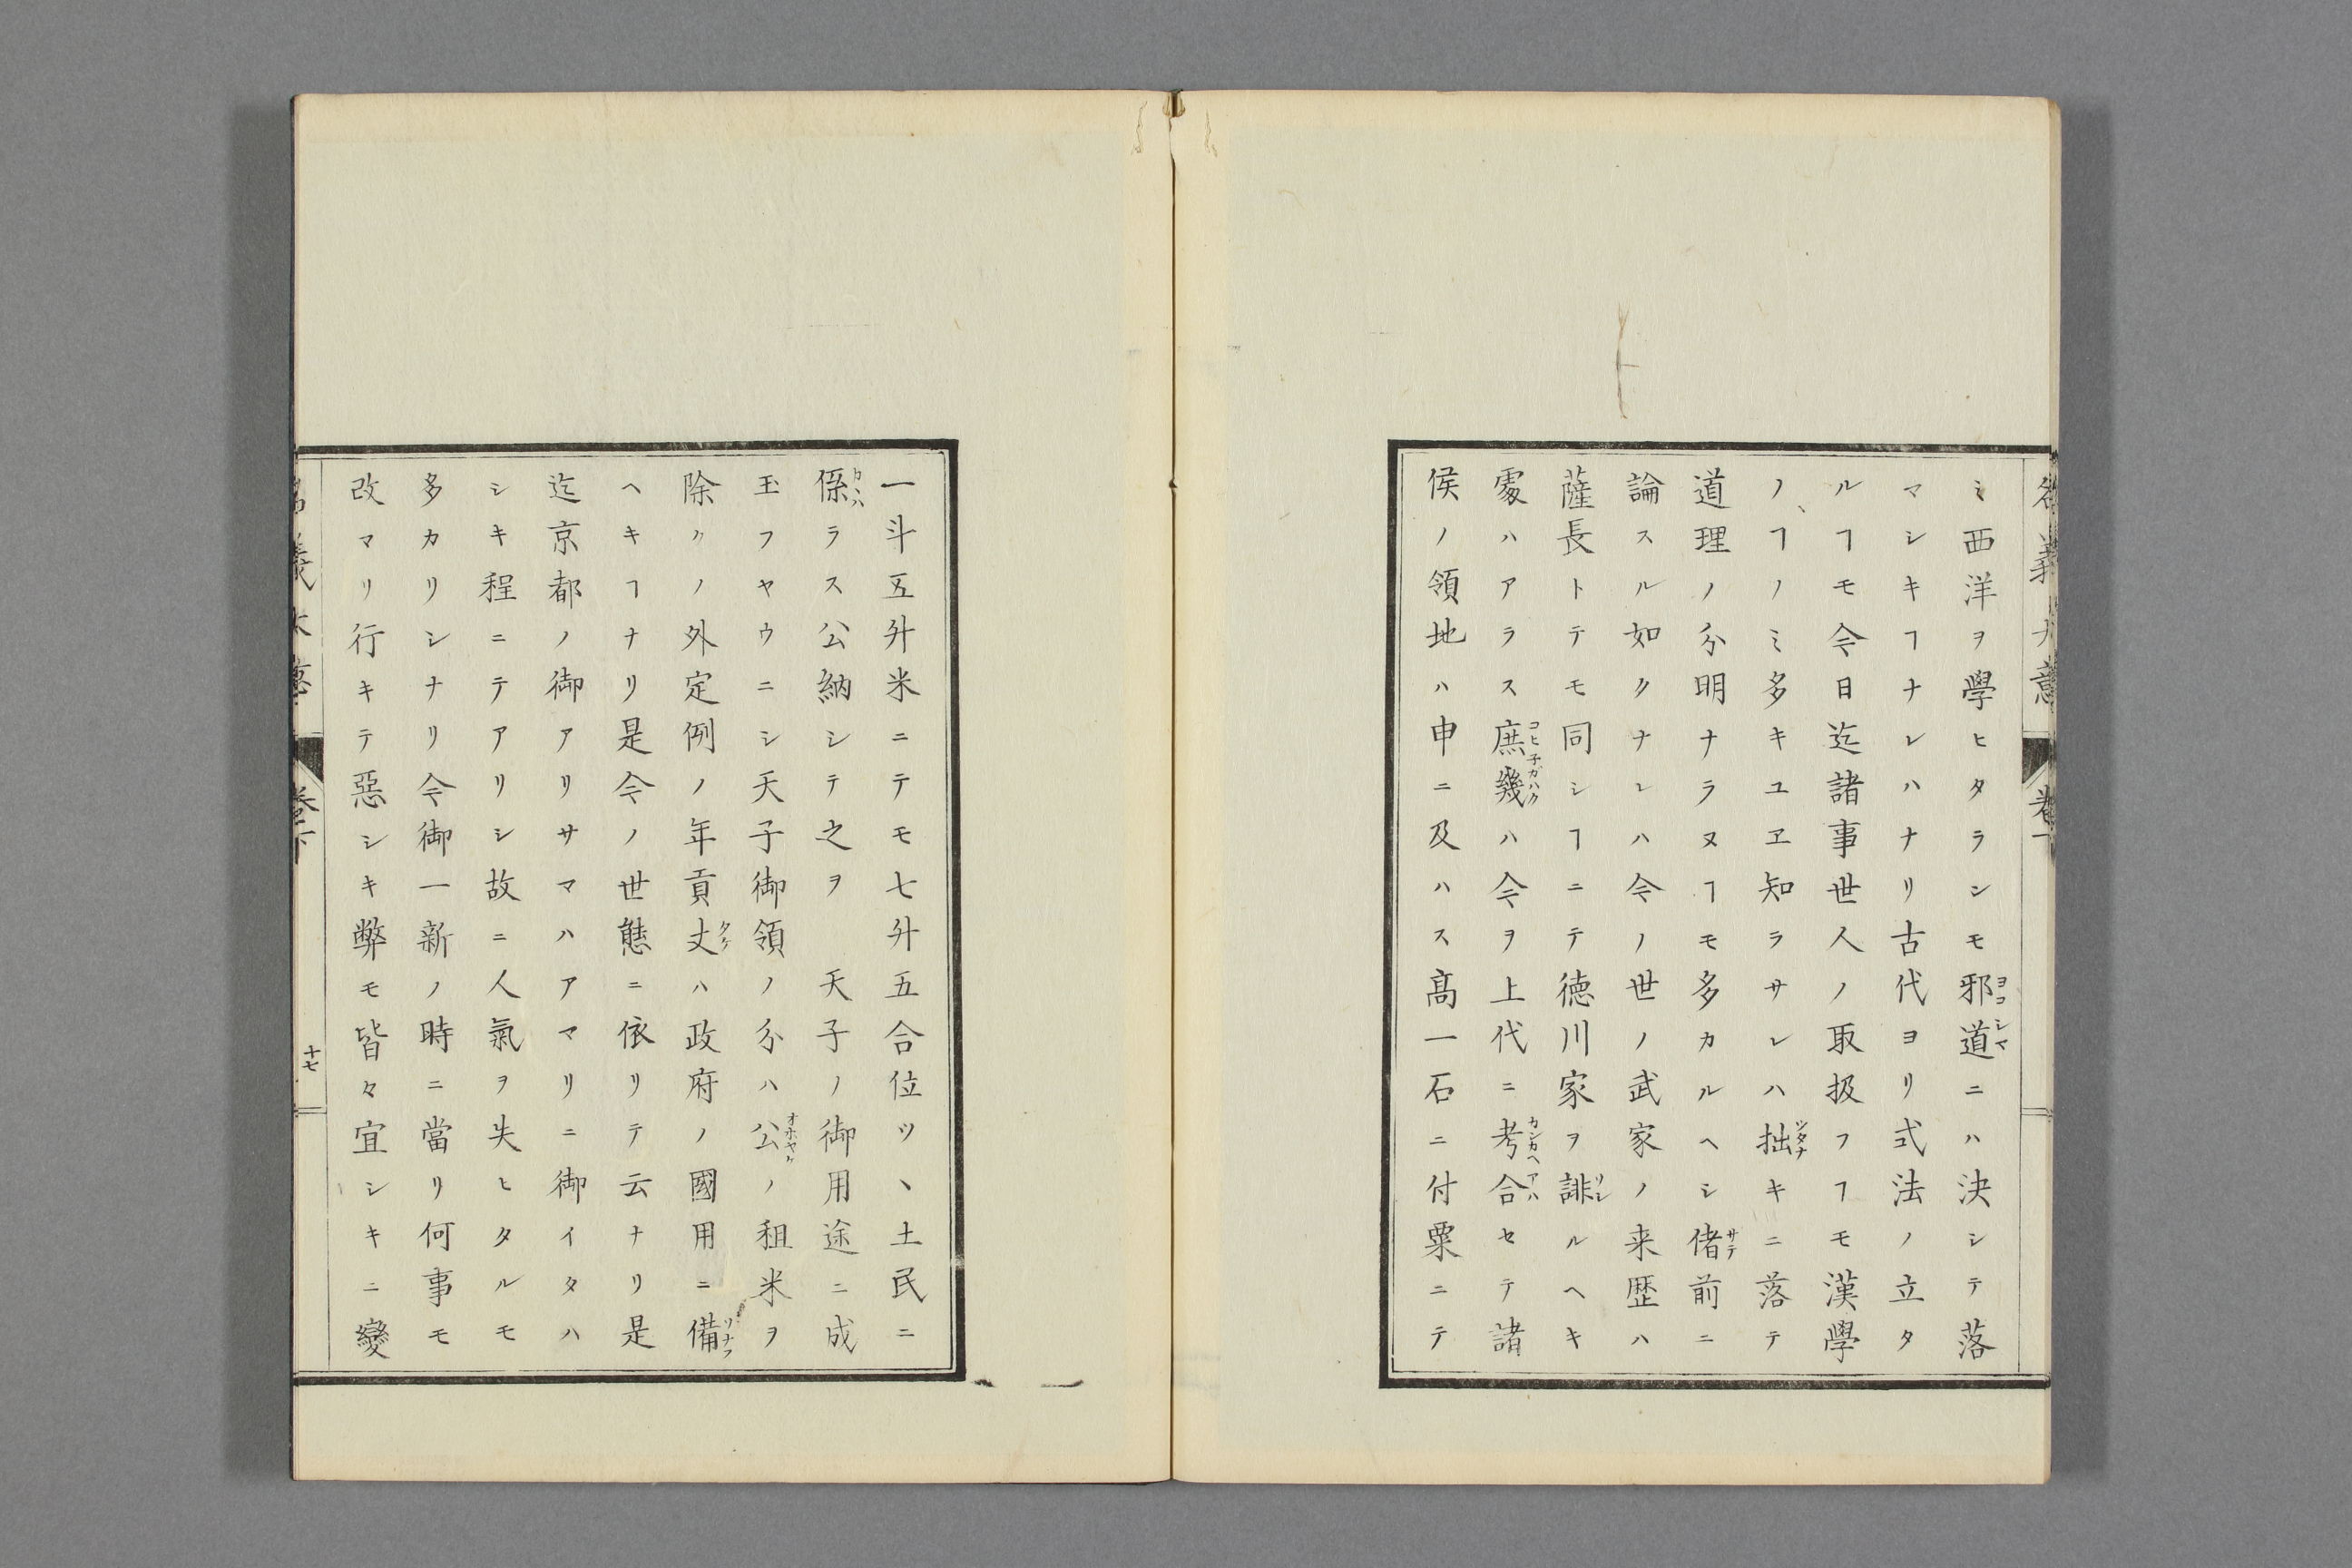 ミ西洋ヲ學ヒタランモ邪道ニハ決シテ落
マシキヿナレハナリ古代ヨリ式法ノ立タ
ルヿモ今日迄諸事世人ノ取扱フヿモ漢學
ノヿノミ多キユヱ知ラサレハ拙キニ落テ
道理ノ分明ナラヌヿモ多カルヘシ偖前ニ
論スル如クナレハ今ノ世ノ武家ノ来歴ハ
薩長トテモ同シヿニテ徳川家ヲ誹ルヘキ
處ハアラス庶幾ハ今ヲ上代ニ考合セテ諸
侯ノ領地ハ申ニ及ハス髙一石ニ付粟ニテ
一斗五升米ニテモ七升五合位ツヽ土民ニ
係ラス公納シテ之ヲ　天子ノ御用途ニ成
玉フヤウニシ天子御領ノ分ハ公ノ租米ヲ
除クノ外定例ノ年貢丈ハ政府ノ國用ニ備
ヘキヿナリ是今ノ世態ニ依リテ云ナリ是
迄京都ノ御アリサマハアマリニ御イタハ
シキ程ニテアリシ故ニ人氣ヲ失ヒタルモ
多カリシナリ今御一新ノ時ニ當リ何事モ
改マリ行キテ惡シキ弊モ皆々宜シキニ變
十七